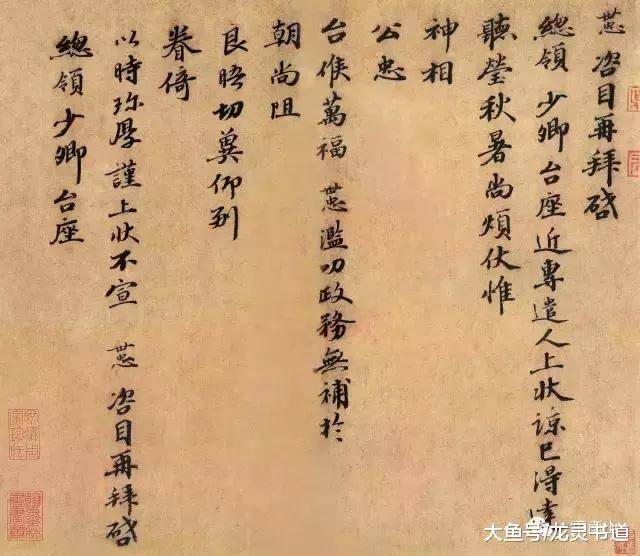 咨目再拜啓
總領少卿台座近專遣人上狀諒已得達
聽瑩秋暑尚煩伏惟
神相
公忠
台候萬福 濫叨政務無補於
朝尚阻
良晤切冀仰副
眷倚
以時珍厚謹上狀不宣 咨目再拜啓
總領少卿台座
大鱼号/龙灵书道